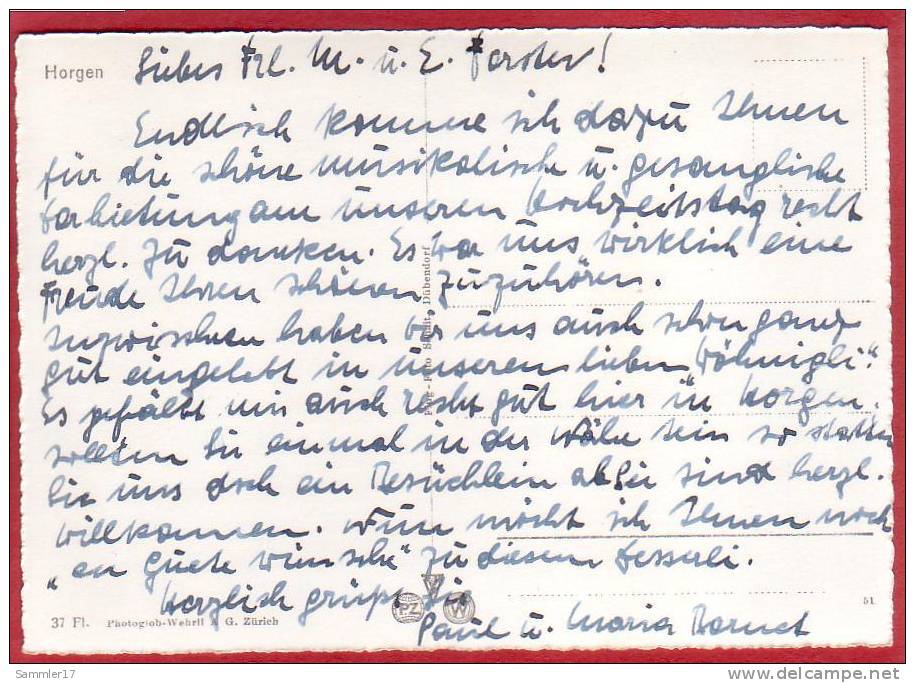 Horgen
Liebes Frl. M. u. E. Forster!
Endlich komme ich dazu Ihnen
für die schöne musikalische u. gesangliche
Darbietung am unseren Hochzeitstag recht
herzl. zu danken. Es war uns wirklich eine
Freude Ihren schönen zuzuhören.
Inzwischen haben wir uns auch schon ganz
gut eingelebt in unserem lieben "Wöhnigli".
Es gefällt mir auch recht gut hier in Horgen.
sollten Sie einmal in der Nähe sein so statten
Sie uns doch ein Besüchlein ab Sie sind herzl.
willkommen. Nun möcht ich Ihnen noch
"en Guete wünsche" zu diesem
Herzlich grüßt Sie
Paul u. Maria
37 Fl. Photoglob-Wehrli A G. Zürich
PZ
W
51
Dübendorf
Sammler17
www.delcampe.net